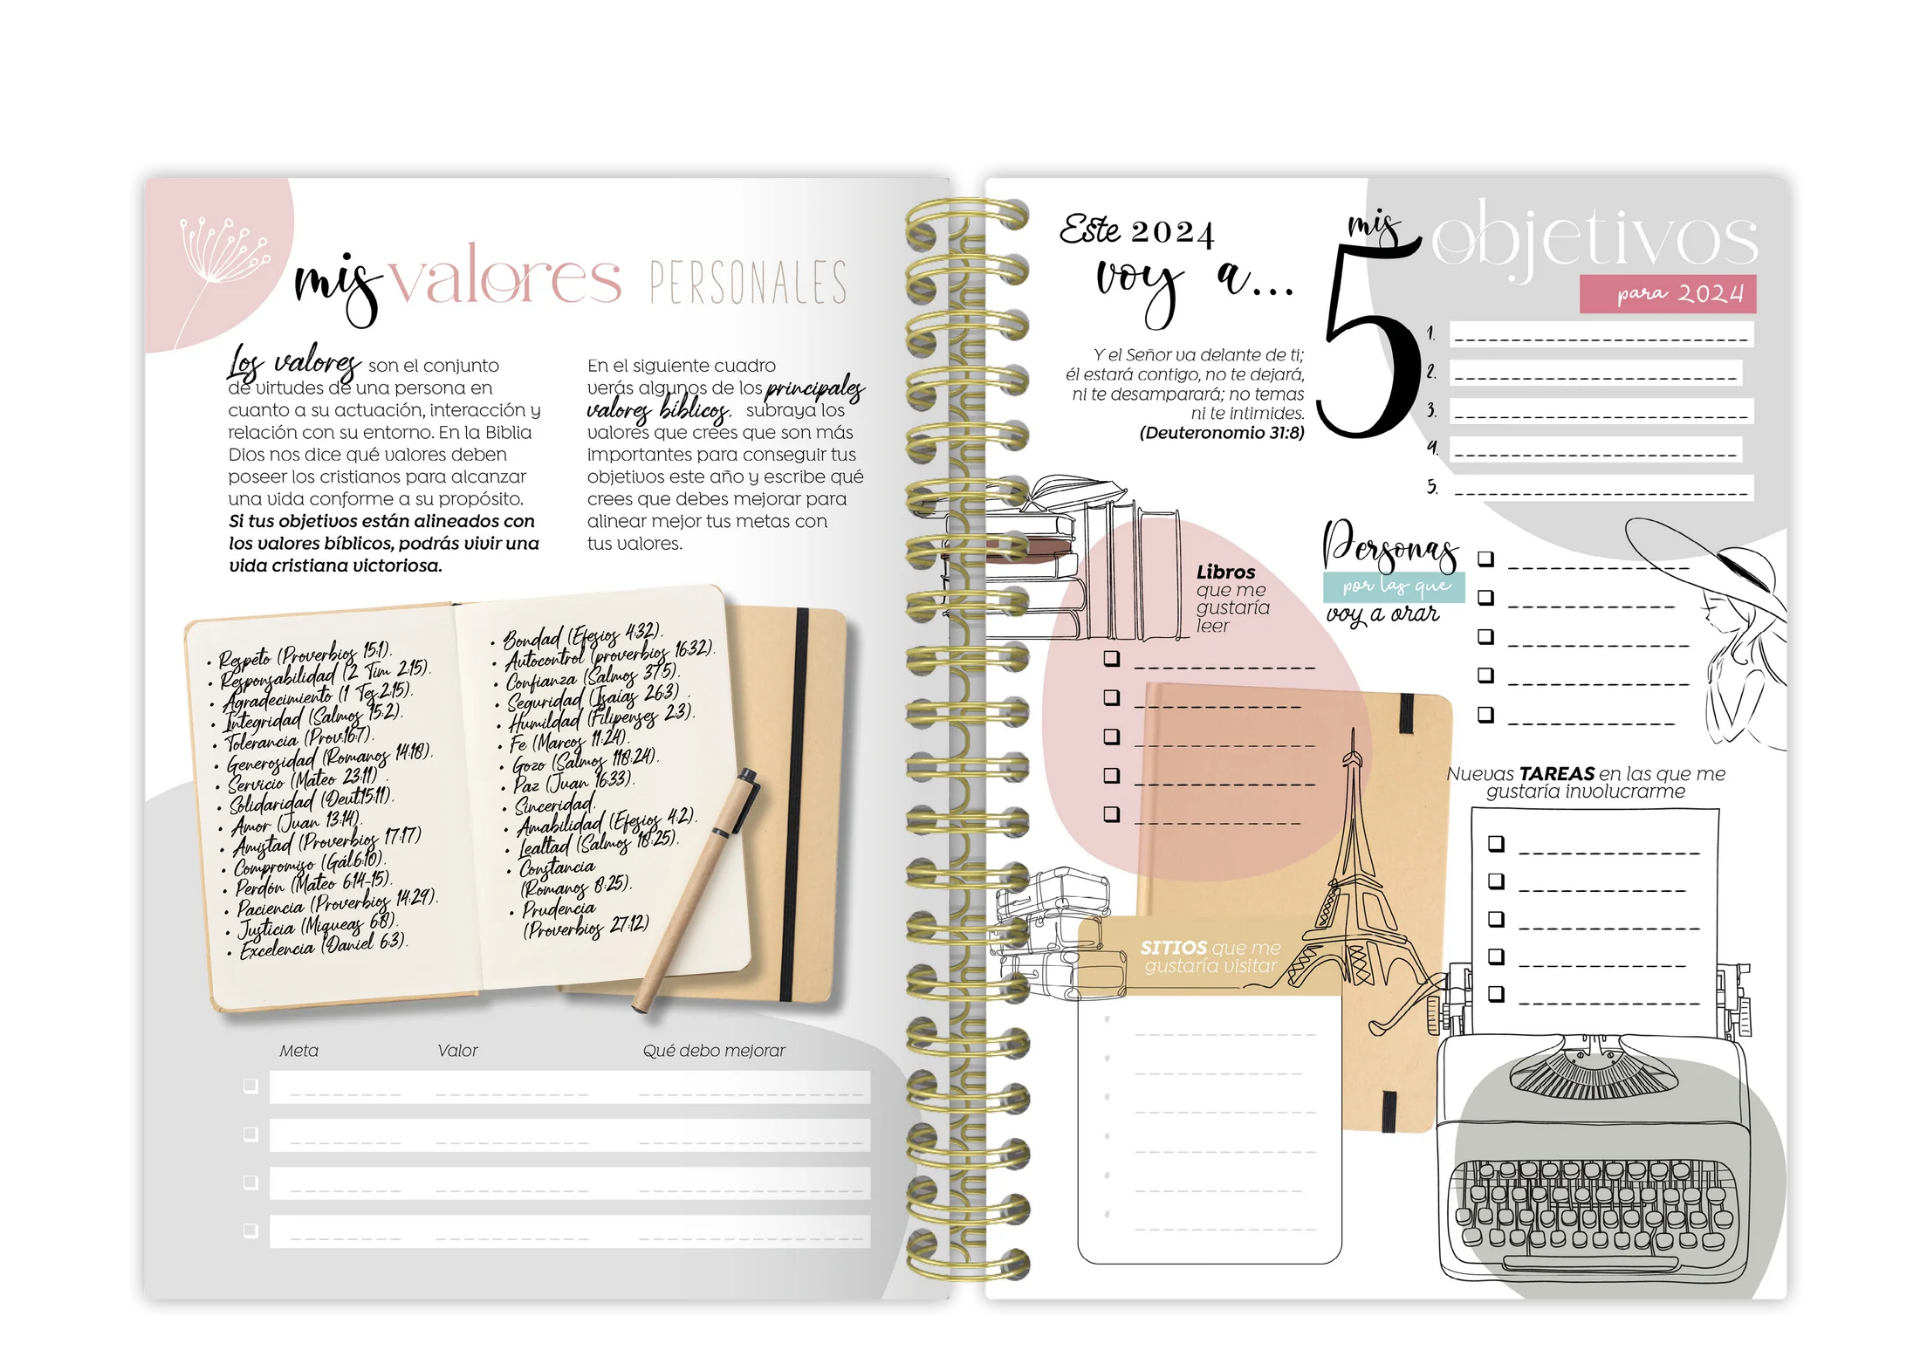 mis valores PERSONALES
Los valores son el conjunto
de virtudes de una persona en
cuanto a su actuación, interacción y
relación con su entorno. En la Biblia
Dios nos dice qué valores deben
poseer los cristianos para alcanzar
una vida conforme a su propósito.
Si tus objetivos están alineados con
los valores bíblicos, podrás vivir una
vida cristiana victoriosa.
En el siguiente cuadro
verás algunos de los principales
valores bíblicos. subraya los
valores que crees que son más
importantes para conseguir tus
objetivos este año y escribe qué
crees que debes mejorar para
alinear mejor tus metas con
tus valores.
• Respeto (Proverbios 15:1).
• Responsabilidad (2 Tim 2:15).
• Agradecimiento (1 Tes 2:15).
• Integridad (Salmos 15:2).
• Tolerancia (Prov:16:7).
• Generosidad (Romanos 14:18).
• Servicio (Mateo 23:11) .
• Solidaridad (Deut:15:11).
• Amor (Juan 13:14).
• Amistad (Proverbios 17:17)
• Compromiso (Gál:6:10).
• Perdón (Mateo 6:14-15).
• Paciencia (Proverbios 14:29).
• Justicia (Miqueas 6:8).
• Excelencia (Daniel 6:3).
• Bondad (Efesios 4:32).
• Autocontrol (proverbios 16:32).
• Confianza (Salmos 37:5).
• Seguridad (Isaías 26:3) .
• Humildad (Filipenses 2:3).
• Fe (Marcos 11:24).
• Gozo (Salmos 118:24).
• Paz (Juan 16:33).
• Sinceridad.
• Amabilidad (Efesios 4:2).
• Lealtad (Salmos 18:25).
• Constancia
(Romanos 8:25).
• Prudencia
(Proverbios 27:12)
Meta Valor Qué debo mejorar
Este 2024
voy a...
Y el Señor va delante de ti;
él estará contigo, no te dejará,
ni te desamparará; no temas
ni te intimides.
(Deuteronomio 31:8)
mis 5 objetivos
para 2024
1.
2.
3.
4.
5.
Libros
que me
gustaría
leer
Personas
por las que
voy a orar
Nuevas TAREAS en las que me
gustaría involucrarme
SITIOS que me
gustaría visitar